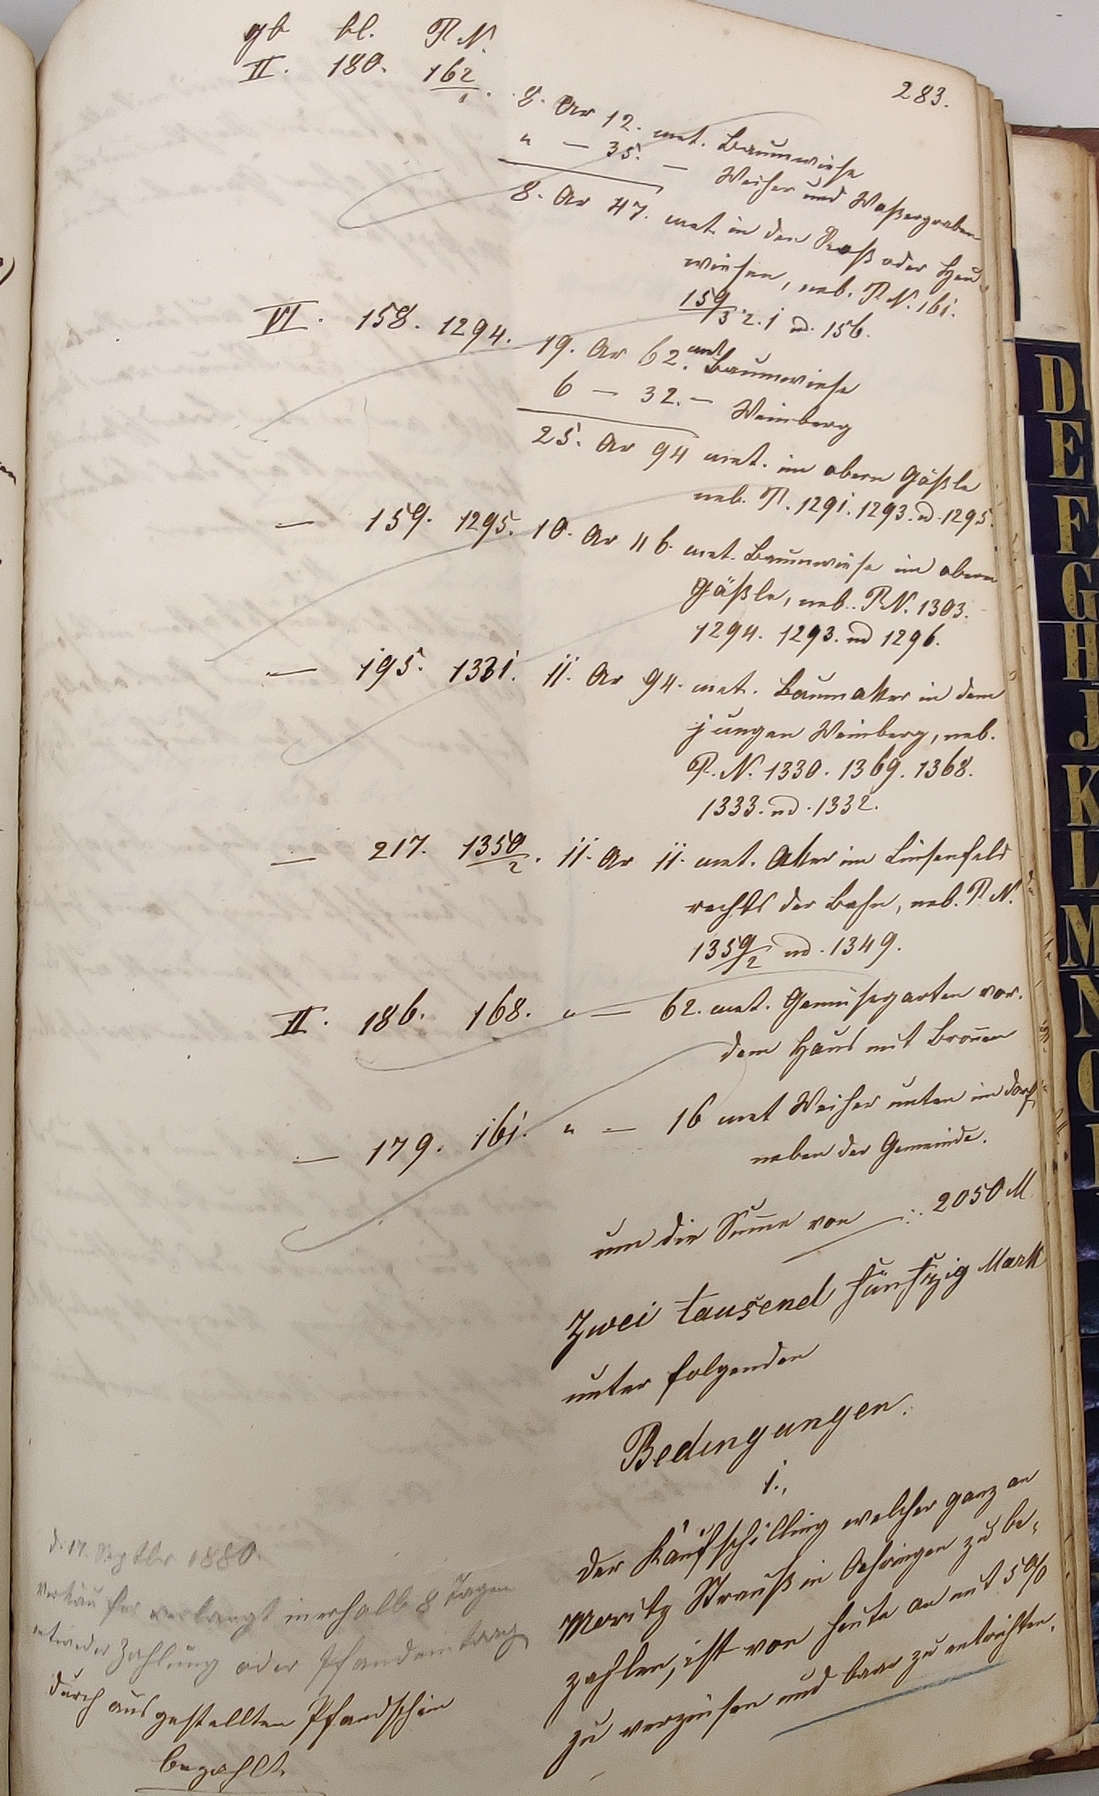 gb bl. P.N.
283.
II. 180. 162/1. 8. Ar 12. met. Baumwiese
" — 35. — Weiher und Waßergraben
8. Ar 47. met. in den Roß oder Heu-
wiesen, neb. P.N. 161.
159/3 2.1 nd. 156.
VI. 158. 1294. 19. Ar 62. met Baumwiese
6 — 32. — Weinberg
25. Ar 94 met. im obern Gäßle
neb. P. 1291. 1293. nd. 1295.
— 159. 1295. 10. Ar 46. met. Baumwiese im obern
Gäßle, neb. P.N. 1303.
1294. 1293. nd 1296.
— 195. 1331. 11. Ar 94. met. Baumaker in dem
jungen Weinberg, neb.
P.N. 1330. 1369. 1368.
1333. nd. 1332.
— 217. 1350/2. 11. Ar 11. met. Aker im Linsenfeld
rechts der Bahn, neb. P.N.
1359/2 nd. 1349.
II. 186. 168. " — 62. met. Gemüsegarten vor
dem Haus mit Bronnen
— 179. 161. " — 16 met Weiher unten im Dorf,
neben der Gemeinde.
um die Summe von —: 2050 M
Zwei tausend fünfzig Mark
unter folgenden
Bedingungen:
1.,
Der Kaufschilling welcher ganz an
Moritz Strauß in Oehringen zu be-
zahlen, ist von heute an mit 5%
zu verzinsen und baar zu entrichten.
d. 17. Septbr 1880.
Verkäufer verlangt inerhalb 8 Tagen
entweder Zahlung oder Pfandeintrag
durch aus gestellten Pfandschein
bezahlt.
D
E
F
G
H
J
K
L
M
N
O